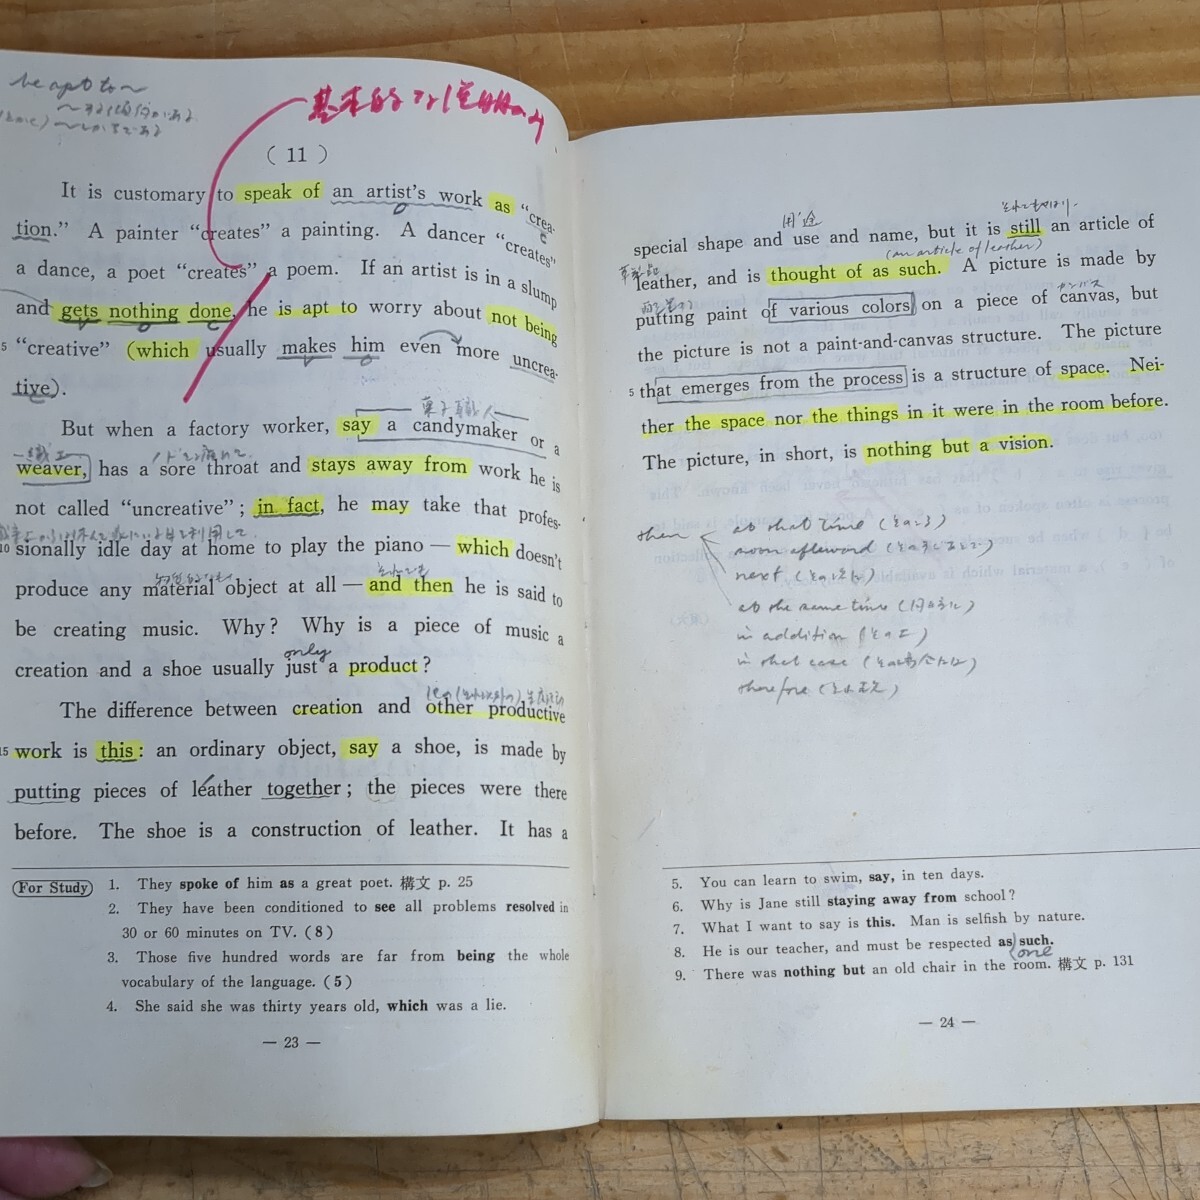 be apt to ~
基本的な
( 11 )
It is customary to speak of an artist's work as "crea-
tion." A painter "creates" a painting. A dancer "creates"
a dance, a poet "creates" a poem. If an artist is in a slump
and gets nothing done, he is apt to worry about not being
5 "creative" (which usually makes him even more uncrea-
tive).
菓子職人
But when a factory worker, say a candymaker or a
織工
weaver, has a sore throat and stays away from work he is
not called "uncreative"; in fact, he may take that profes-
10 sionally idle day at home to play the piano — which doesn't
produce any material object at all — and then he is said to
be creating music. Why? Why is a piece of music a
only
creation and a shoe usually just a product?
The difference between creation and other productive
15 work is this: an ordinary object, say a shoe, is made by
putting pieces of leather together; the pieces were there
before. The shoe is a construction of leather. It has a
For Study 1. They spoke of him as a great poet. 構文 p. 25
2. They have been conditioned to see all problems resolved in
30 or 60 minutes on TV. (8)
3. Those five hundred words are far from being the whole
vocabulary of the language. (5)
4. She said she was thirty years old, which was a lie.
— 23 —
用途
special shape and use and name, but it is still an article of
(an article of leather)
leather, and is thought of as such. A picture is made by
カンバス
putting paint of various colors on a piece of canvas, but
the picture is not a paint-and-canvas structure. The picture
5 that emerges from the process is a structure of space. Nei-
ther the space nor the things in it were in the room before.
The picture, in short, is nothing but a vision.
then
at that time (その時)
soon afterward
next (その次に)
at the same time (同時に)
in addition (その上)
in that case (その場合には)
therefore (それ故)
5. You can learn to swim, say, in ten days.
6. Why is Jane still staying away from school?
7. What I want to say is this. Man is selfish by nature.
8. He is our teacher, and must be respected as such.
one
9. There was nothing but an old chair in the room. 構文 p. 131
— 24 —